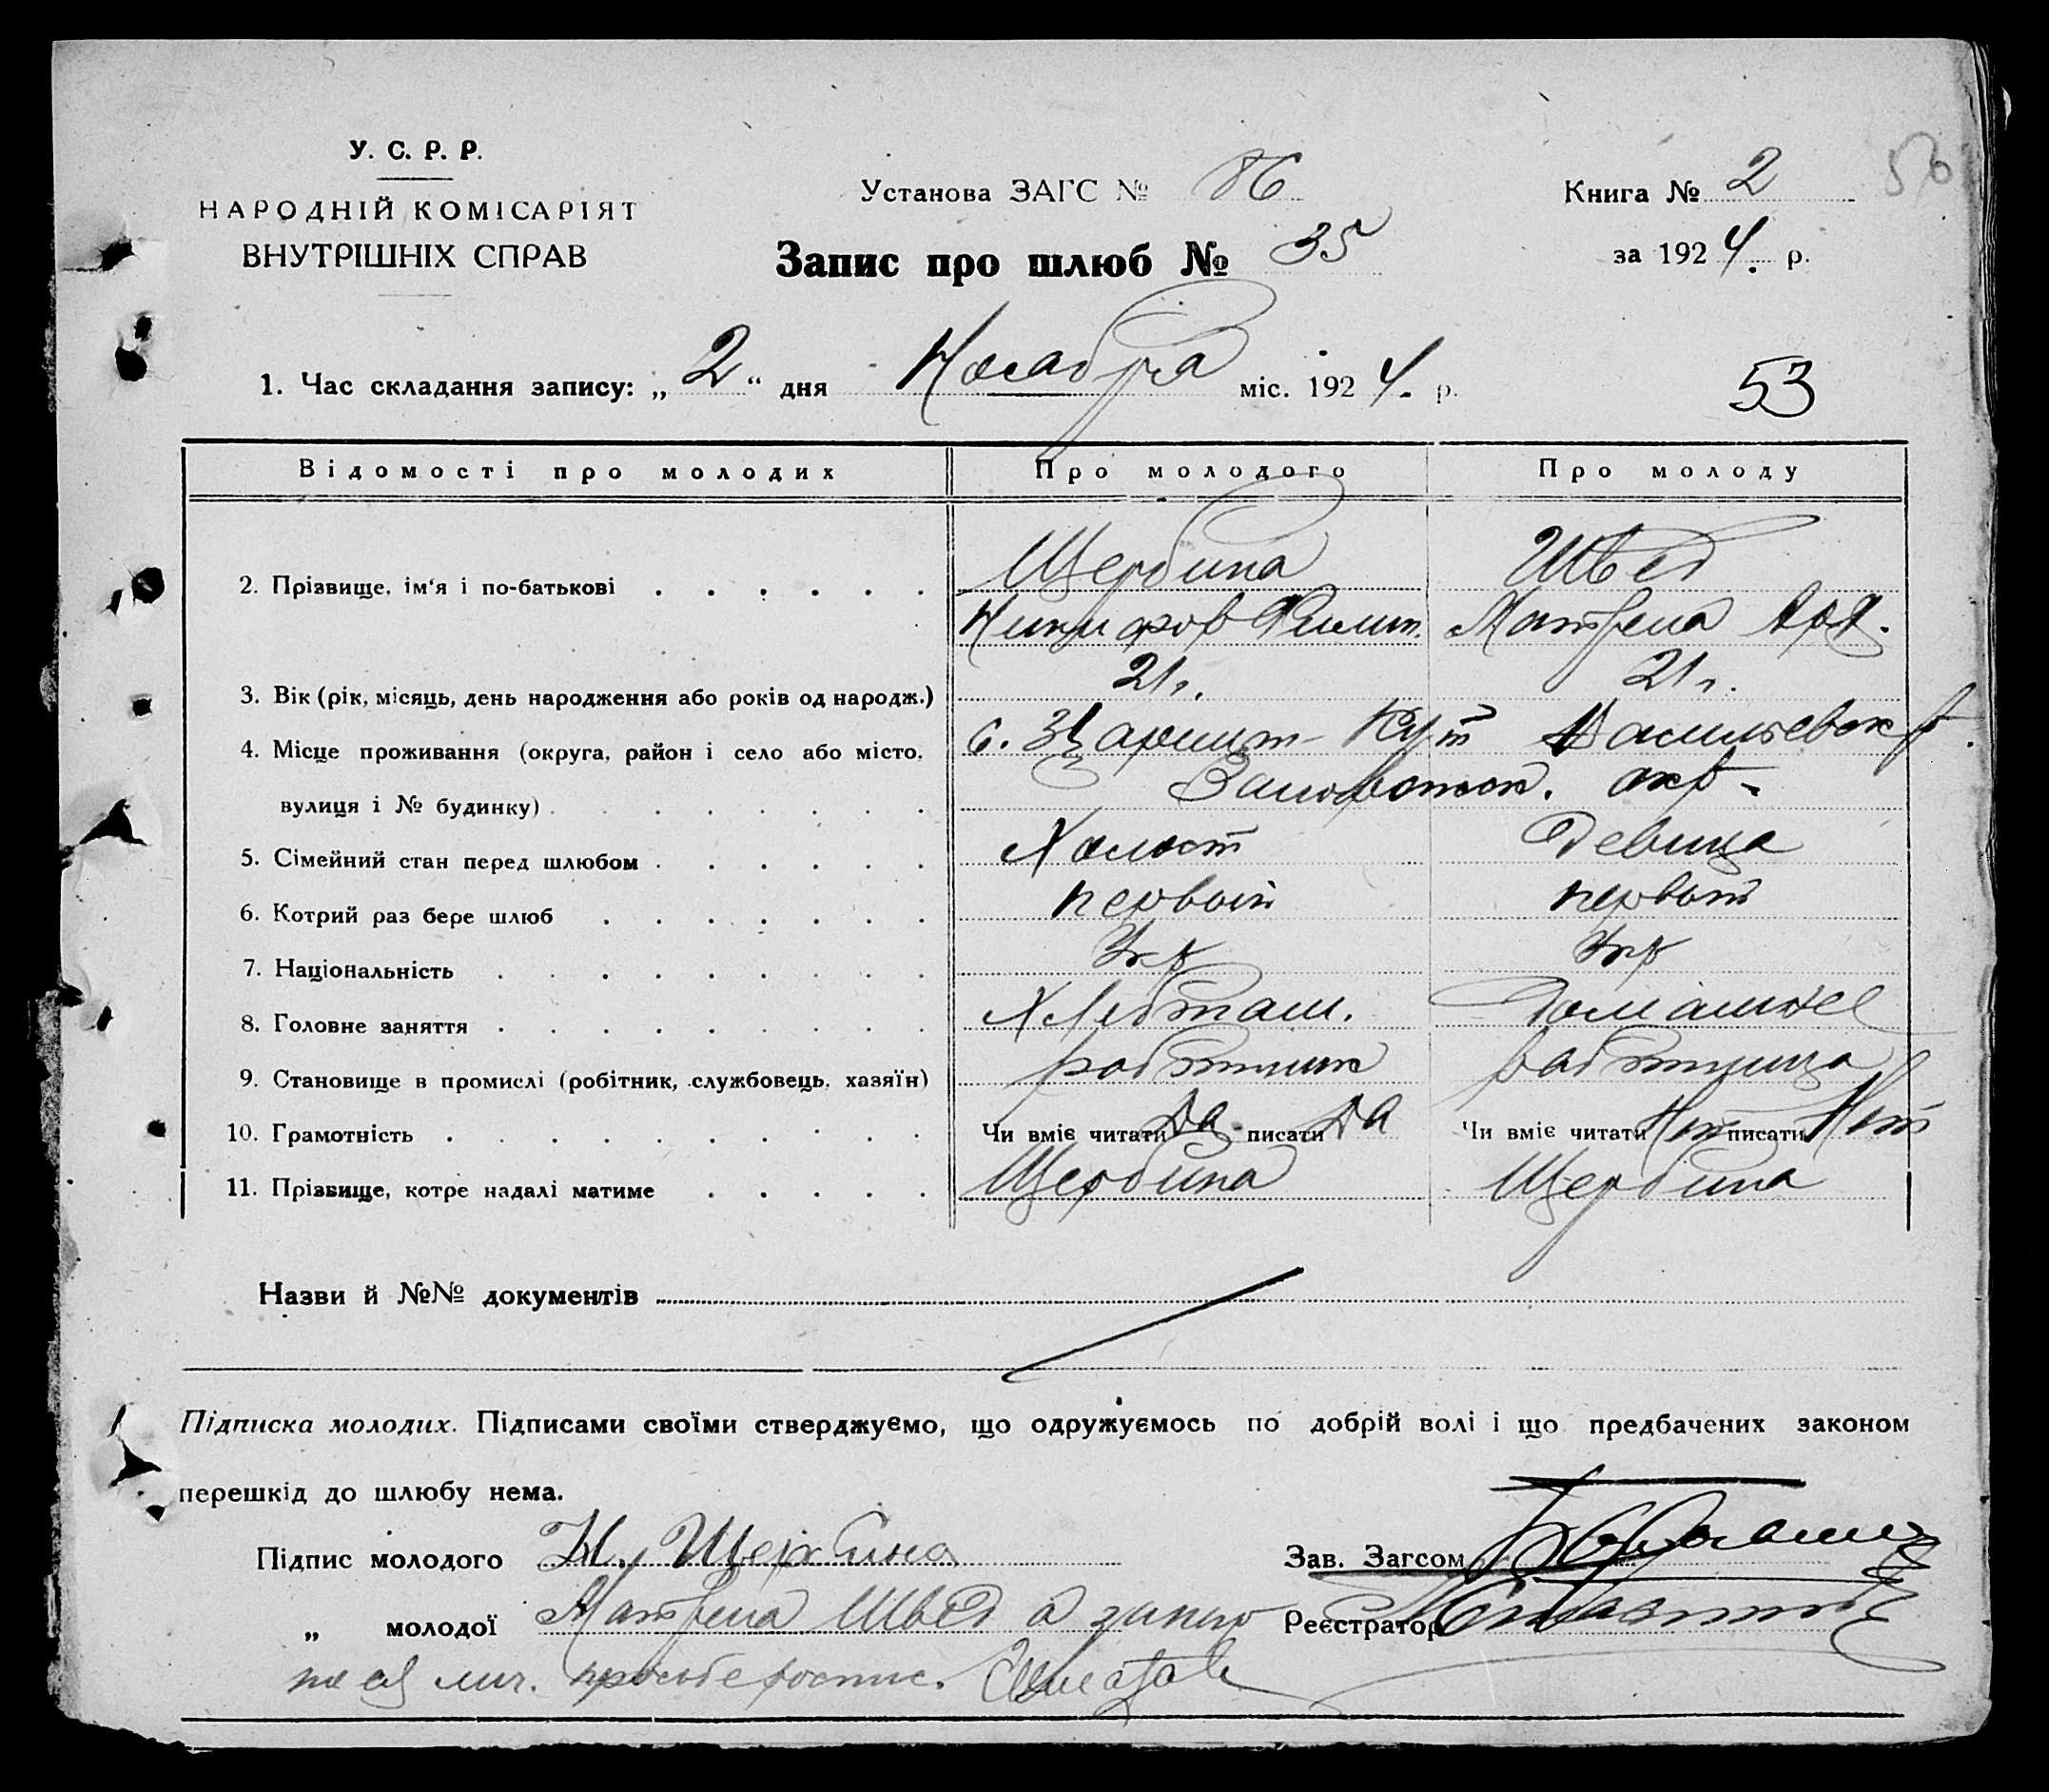 У. С. Р. Р.
НАРОДНІЙ КОМІСАРІЯТ
ВНУТРІШНІХ СПРАВ
Установа ЗАГС № 86
Запис про шлюб № 35
Книга № 2
50
за 1924. р.
1. Час складання запису: „2“ дня Ноября міс. 1924. р.
53
Відомості про молодих Про молодого Про молоду
2. Прізвище, ім'я і по-батькові Щербина Швед
Никифор Филип. Матрена
3. Вік (рік, місяць, день народження або років од народж.) 21 г. 21 г.
4. Місце проживання (округа, район і село або місто, с. Царицын-Кут Васильевск. р.
вулиця і № будинку) Запорожск. окр.
5. Сімейний стан перед шлюбом Холост Девица
6. Котрий раз бере шлюб первый первый
7. Національність Укр Укр
8. Головне заняття Хлебопаш. Домашнее
9. Становище в промислі (робітник, службовець, хазяїн) работник работница
10. Грамотність Чи вміє читати Да писати Да Чи вміє читати Нет писати Нет
11. Прізвище, котре надалі матиме Щербина Щербина
Назви й №№ документів
Підписка молодих. Підписами своїми стверджуємо, що одружуємось по добрій волі і що предбачених законом
перешкід до шлюбу нема.
Підпис молодого Н. Щербина Зав. Загсом
„ молодої Матрена Швед а за нею Реєстратор
по её лич. просьбе роспис.